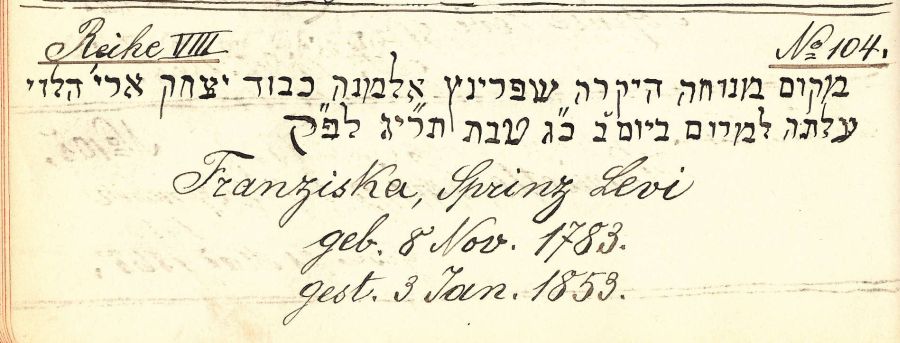 Reihe VIII
No 104.
מקום מנוחה היקרה שפרינץ אלמנה כבוד יצחק ארי׳ הלוי
עלתה למרום ביום ב׳ כ״ג טבת תרי״ג לפ״ק
Franziska, Sprinz Levi
geb. 8 Nov. 1783.
gest. 3 Jan. 1853.